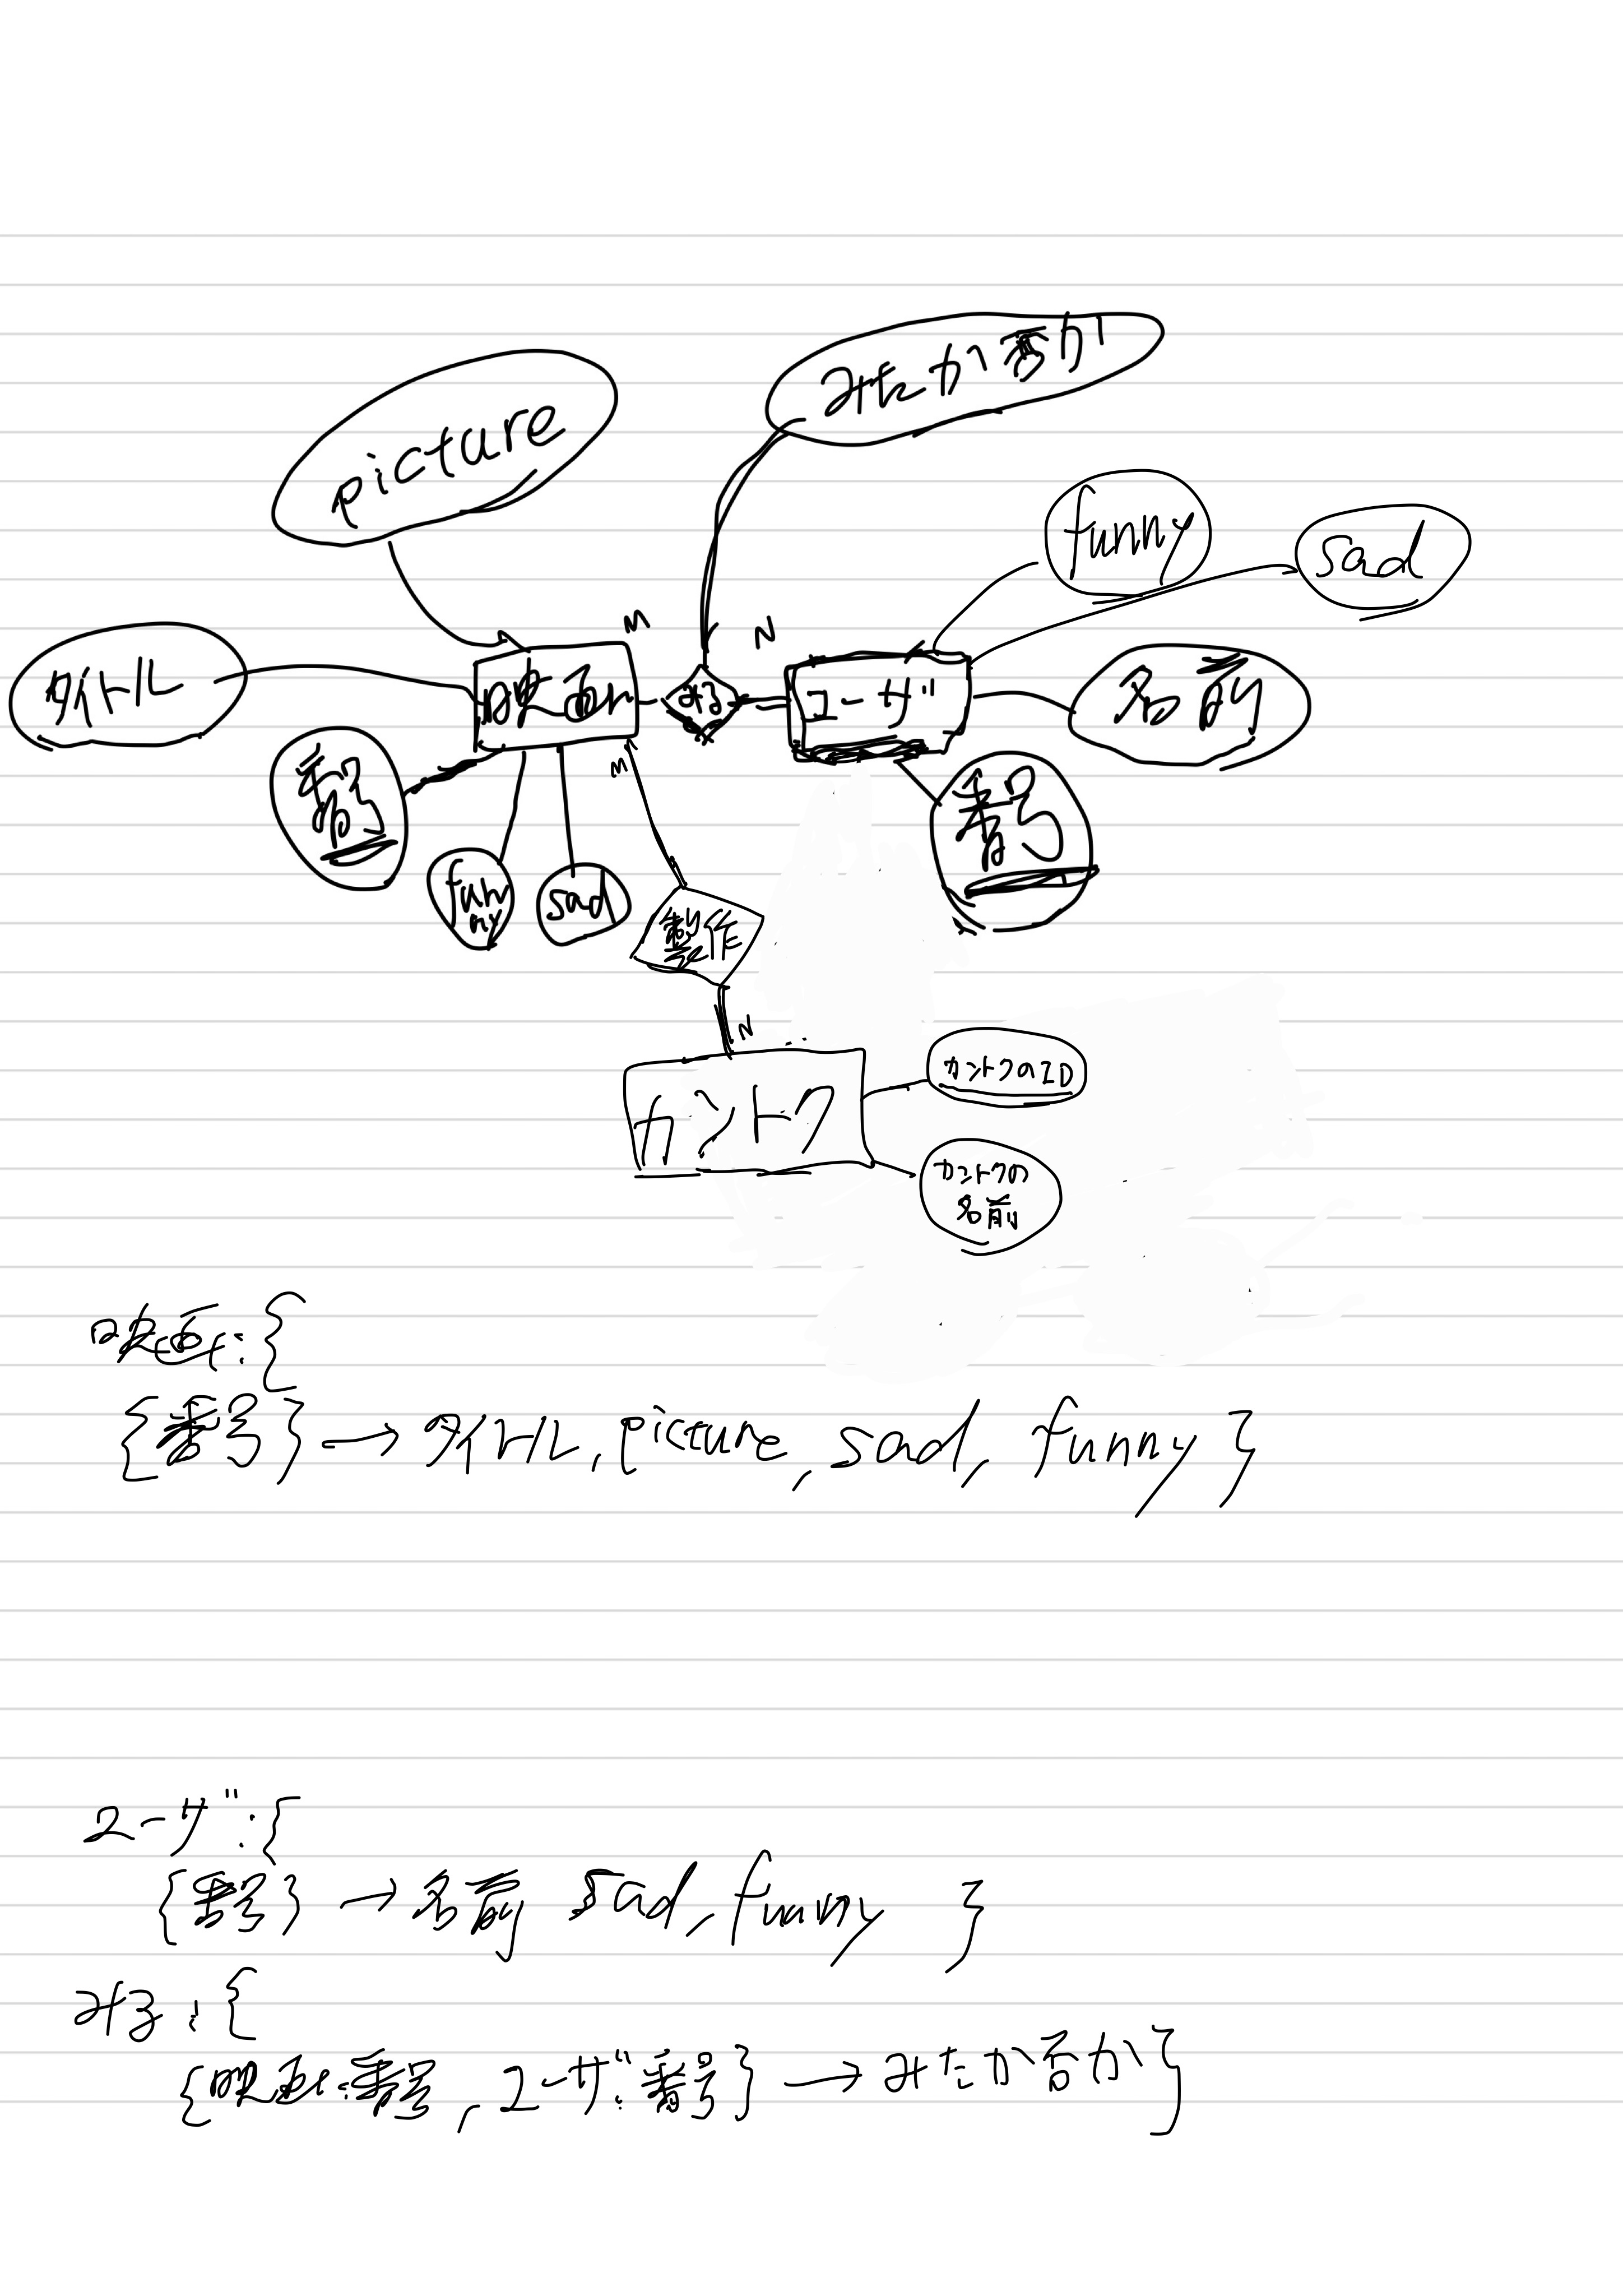 みたか否か
picture
funny
sad
M
N
タイトル
映画
みる
ユーザ
名前
番号
M
番号
funny
sad
製作
N
カントクのID
カントク
カントクの
名前
映画:{
{番号}→タイトル,picture,sad,funny}
ユーザ:{
{番号}→名前 sad,funny }
みる:{
{映画:番号,ユーザ:番号}→みたか否か}